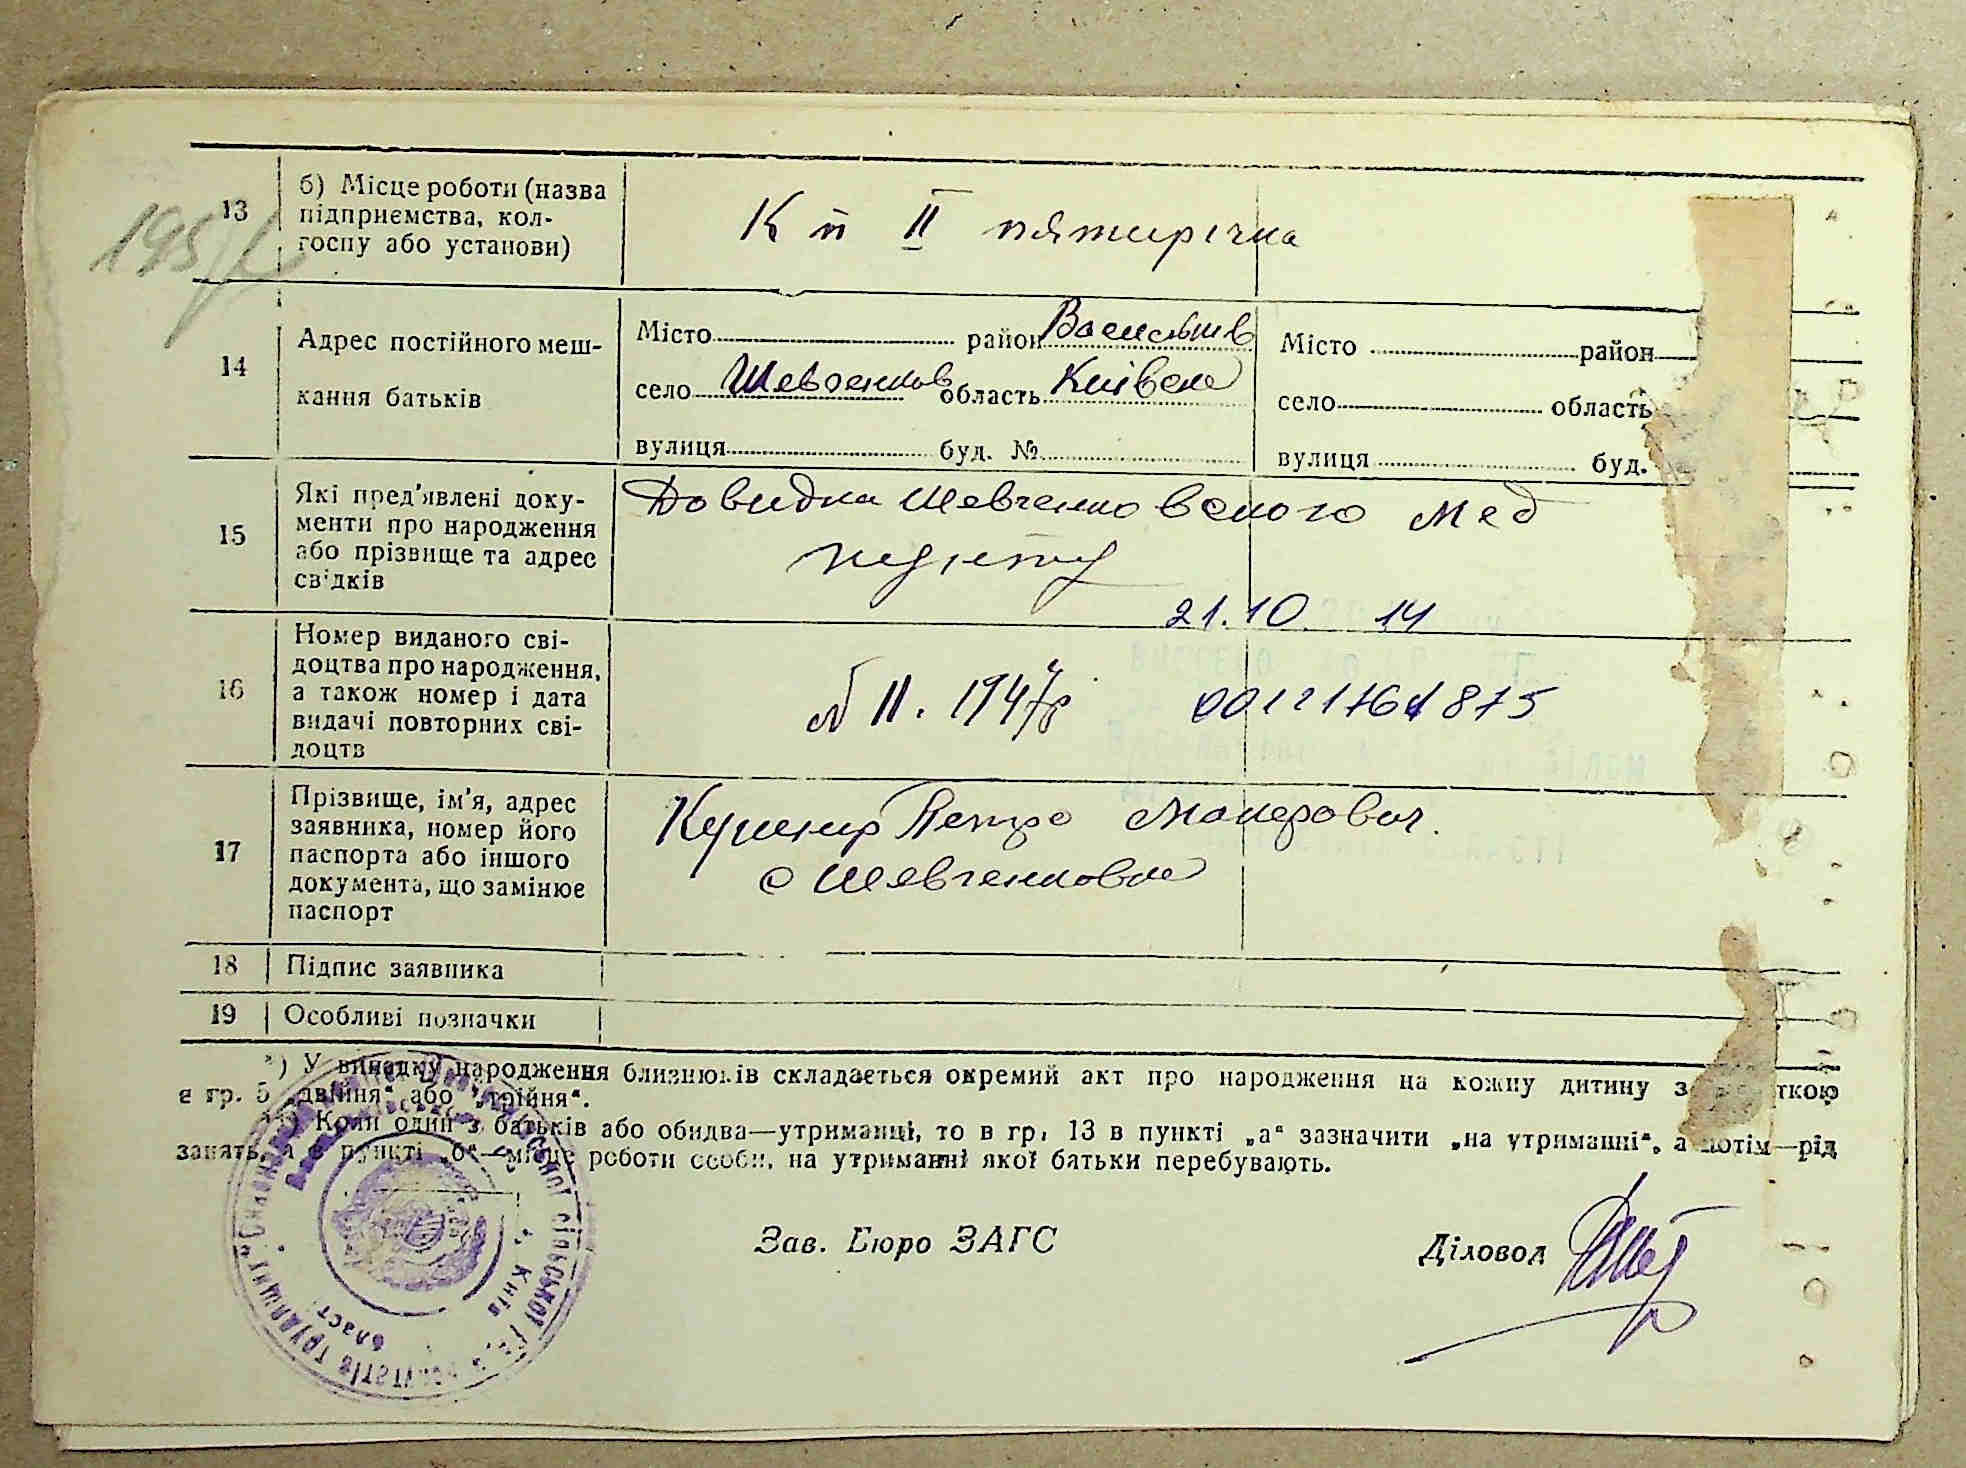 195
13
б) Місце роботи (назва
підприємства, кол-
госпу або установи)
К п II пятирічка
14
Адрес постійного меш-
кання батьків
Місто район Васильків
село Шевченков область Київська
вулиця буд. №
Місто район
село область
вулиця буд.
15
Які пред'явлені доку-
менти про народження
або прізвище та адрес
свідків
Довидка Шевченковського Мед
пункту
21.10 14
16
Номер виданого сві-
доцтва про народження,
а також номер і дата
видачі повторних сві-
доцтв
№ 11. 1947р
00121761875
17
Прізвище, ім'я, адрес
заявника, номер його
паспорта або іншого
документа, що замінює
паспорт
Петро Макарович.
с Шевченкове
18 Підпис заявника
19 Особливі позначки
*) У випадку народження близнюків складається окремий акт про народження на кожну дитину з
в гр. 5 „двійня“ або „трійня“.
Коли один з батьків або обидва—утриманці, то в гр. 13 в пункті „а“ зазначити „на утриманні“, а потім—рід
занять, а в пункті „б“—місце роботи особи, на утриманні якої батьки перебувають.
Зав. Бюро ЗАГС
Діловод